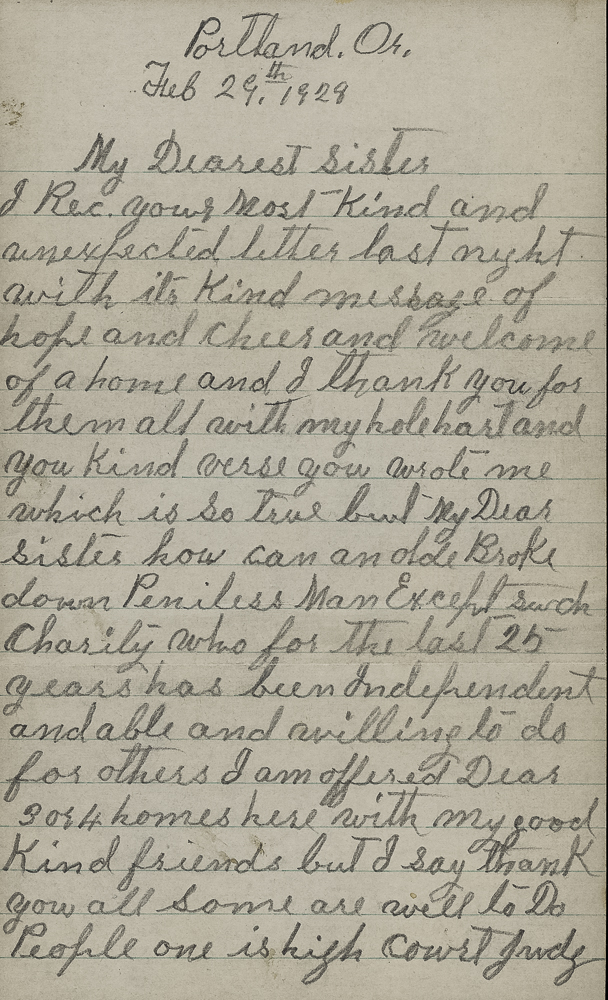 Portland. Or.
Feb 29.th 1928
My Dearest Sister
I Rec. your Most Kind and
unexpected letter last night
with its Kind message of
hope and cheer and welcome
of a home and I thank you for
them all with my hole hart and
you Kind verse you wrote me
which is so true but My Dear
sister how can an olde Broke
down Peniless Man Except such
Charily who for the last 25
years has been Independent
and able and willing to do
for others I am offered Dear
3 or 4 homes here with my good
Kind friends but I say thank
you all some are well to Do
People one is high Court Judg